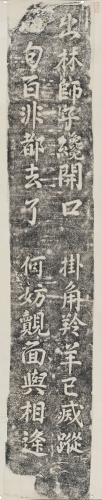 出林師子纔開口　掛角羚羊已滅蹤
句百非都去了　何妨覿面與相逢